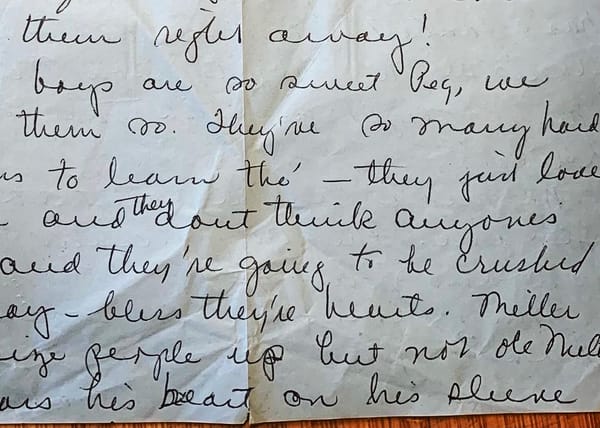 them right away!
boys are so sweet Peg, we
them so. They've so many hard
ns to learn tho' — they just love
and they dont think anyones
and they're going to be crushed
ay - bless they're hearts. Miller
ize people up but not ole Mell
ars his heart on his sleeve